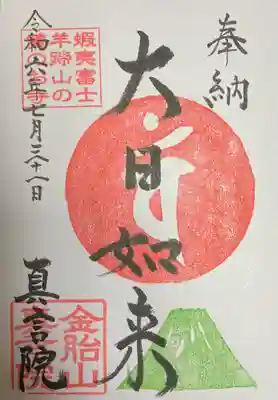 奉納
大日如来
令和六年七月三十一日
真言院
蝦夷富士
羊蹄山の
金胎山